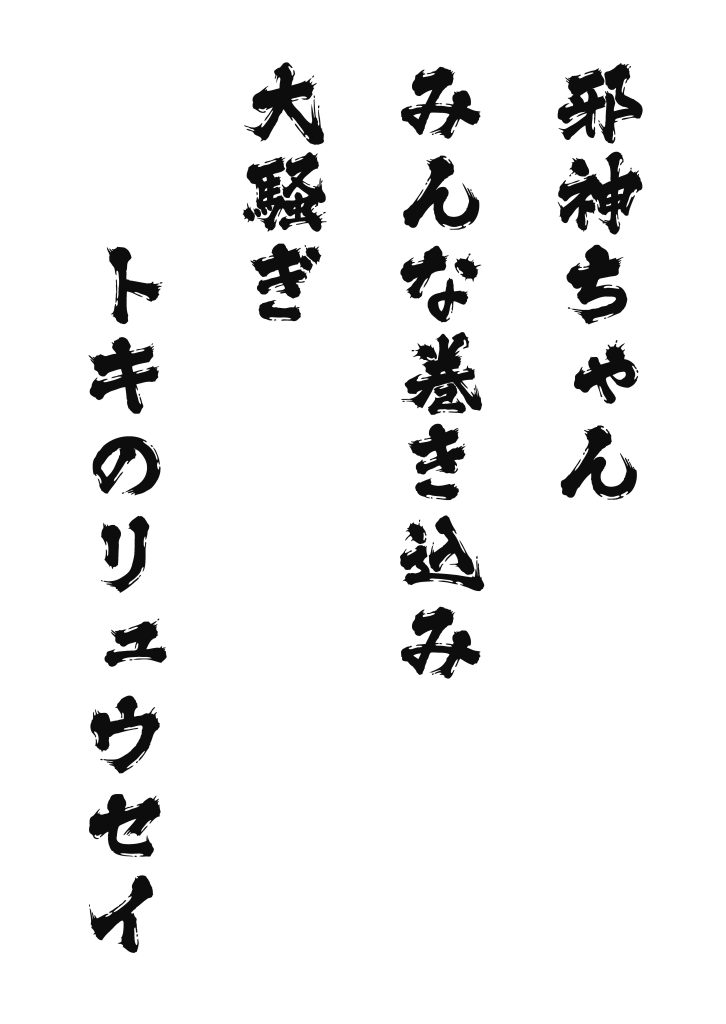 邪神ちゃん
みんな巻き込み
大騒ぎ
トキのリュウセイ